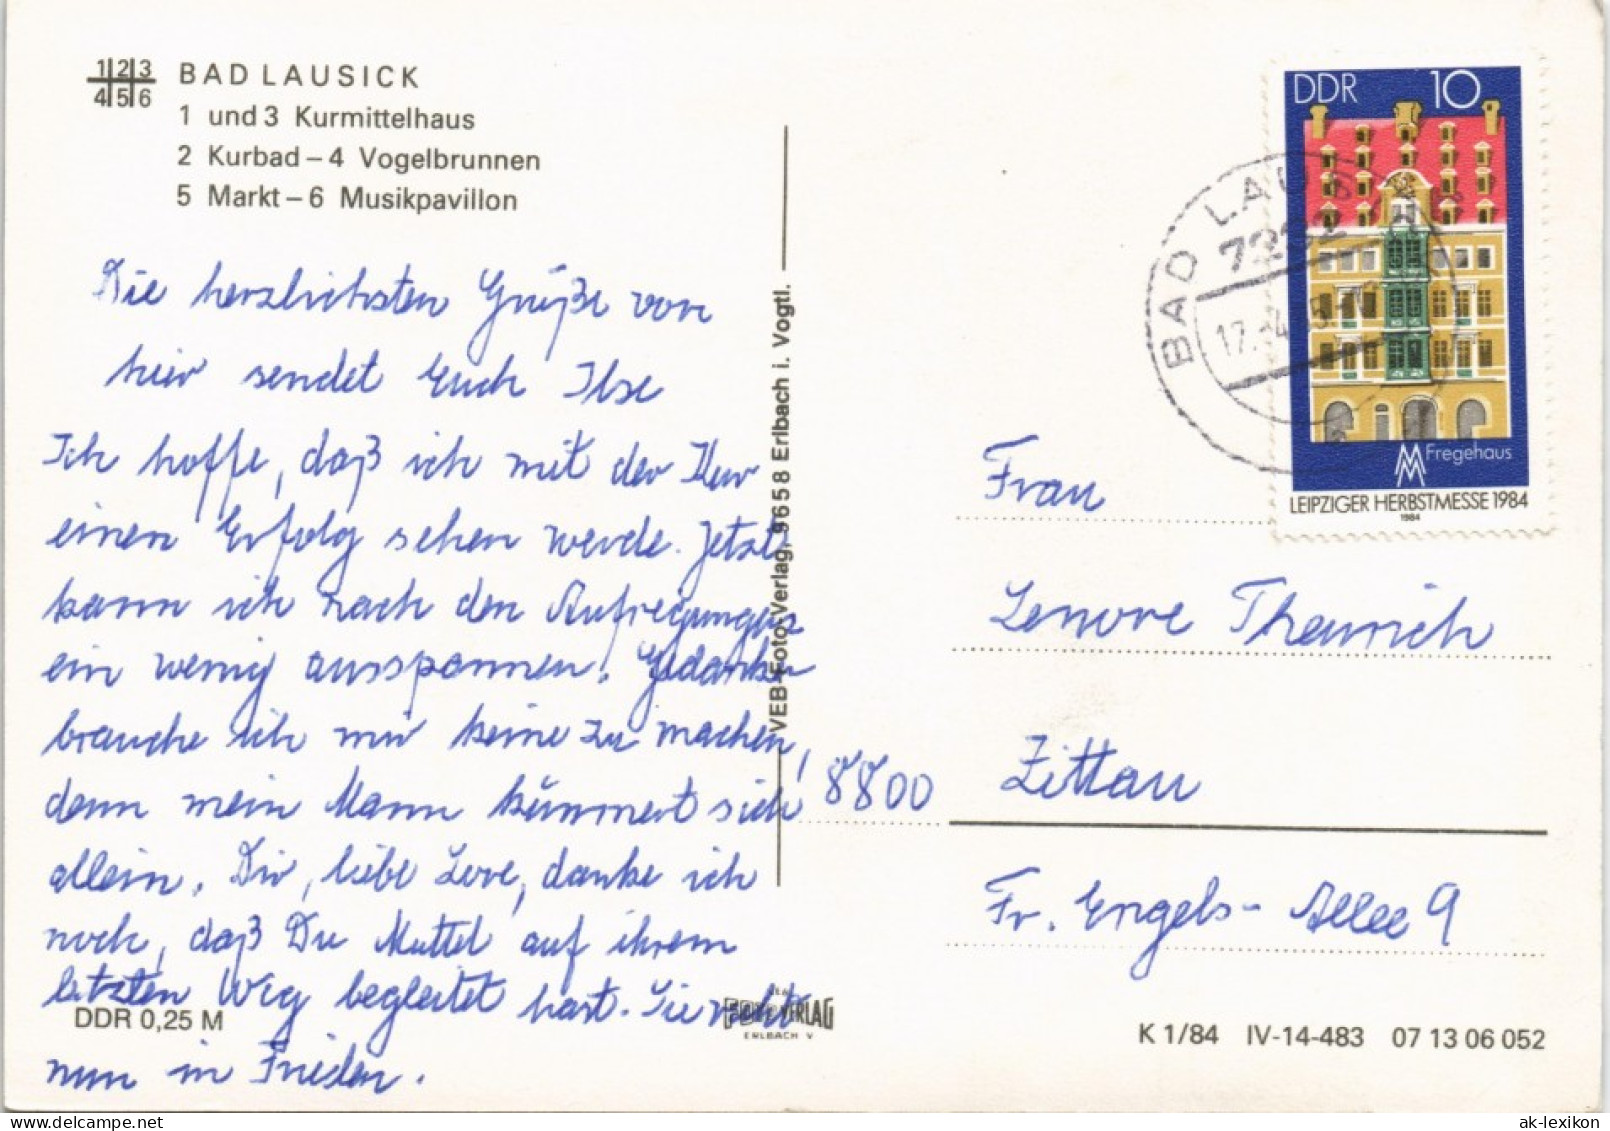 1 2 3
4 5 6
BAD LAUSICK
1 und 3 Kurmittelhaus
2 Kurbad – 4 Vogelbrunnen
5 Markt – 6 Musikpavillon
Die herzlichsten Grüße von
hier sendet Euch Ilse
Ich hoffe, daß ich mit der Kur
einen Erfolg sehen werde. Jetzt
kann ich nach den Aufregungen
ein wenig ausspannen. Gedanken
brauche ich mir keine zu machen,
denn mein Mann kümmert sich
allein. Dir, liebe Lore, danke ich
noch, daß Du Muttel auf ihrem
letzten Weg begleitet hast. Sie ruht
nun in Frieden.
DDR 0,25 M
VEB Foto-Verlag, 9658 Erlbach i. Vogtl.
FOTO VERLAG
ERLBACH V
DDR 10
Fregehaus
LEIPZIGER HERBSTMESSE 1984
1984
BAD LAUSICK
7232
17.-4.85
Frau
Lenore Theurich
8800 Zittau
Fr. Engels-Allee 9
K 1/84 IV-14-483 07 13 06 052
ak-lexikon